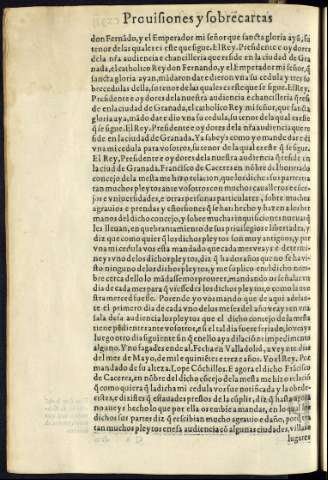 Prouisiones y sobrecartas
don Fernãdo, y el Emperador mi señor que sancta gloria ayã, su
tenor de las quales es este que se sigue. El Rey. Presidente e oydores
de la nr̃a audiencia e chancilleria que resíde en la ciudad de Gra
nada, el catholico Rey don Fernando, y el Emperador mi señor, q̃
sancta gloria ayan, mãdaron dar e dieron vna su cedula y otras so
brecedulas della, su tenor de las quales es este que se sigue. El Rey.
Presidente e oydores de la nuestra audiencia e chancilleria q̃ resi
de en la ciudad de Granada, el catholico Rey mi señor, que sancta
gloria aya, mãdo dar e dio vna su cedula, su tenor de la qual es este
q̃ se sigue. El Rey. Presidente e oydores de la nr̃a audiencia que resi
de en la ciudad de Granada. Ya sabeys como yo mande dar e di
vna mi cedula para vosotros, su tenor de la qual es este q̃ se sigue.
El Rey, Presidente e oydores de la nuestra audiencia q̃ reside en
la ciudad de Granada. Francisco de Caceres en nõbre del honrrado
concejo de la mesta me hizo relacion, que los dichos sus partes tra
tan muchos pleytos ante vosotros con muchos caualleros e conce
jos e vniuersidades, e otras personas particulares, sobre muchos
agrauios e prendas y estorsiones q̃ se han hecho y hazen a los her
manos del dicho concejo, y sobre muchas inquisiciones nueuas q̃
les lleuan, en quebrantamiento de sus priuilegios e libertades, y
diz que como quier q̃ los dichos pleytos son muy antiguos, y por
vna mi cedula vos esta mandado que cada mes veays e determi-
neys vno de los dichos pleytos, diz q̃ ha dos años que no se ha vi-
sto ninguno de los dichos pleytos, y me suplico en el dicho nom-
bre cerca dello lo mãdasse mos proueer, mandando os señalar vn
dia de cada mes para q̃ viessedes los dichos pleytos, o como la nue
stra merced fuesse. Porende yo vos mando que de aqui adelan-
te el primero dia de cada vno de los meses del año veays en vna
sala dessa audiencia los pleytos que el dicho concejo de la mesta
tiene pẽdientes ante vosotros, e si el tal dia fuere feriado, lo veays
luego otro dia siguiente sin q̃ en ello aya dilacion e impedimento
alguno. Y no fagades ende al. Fecha en Valladolid, a veynte dias
del mes de Mayo, de mil e quiniẽtos e treze años. Yo el Rey. Por
mandado de su alteza. Lope Cõchillos. E agora el dicho Frãcisco
de Caceres, en nõbre del dicho cõcejo de la mesta me hizo relaciõ
q̃ como quiera q̃ la dicha mi cedula vos fue notificada y la obede-
cistes, e dixistes q̃ estauades prestos de la cũplir, diz q̃ hasta agora
no aueys hecho lo que por ella os embie a mandar, en lo qual los
dichos sus partes diz q̃ resciban mucho agrauio e daño, porq̃ tra
tan muchos pleytos en essa audiencia cõ algunas ciudades, villas e
lugares